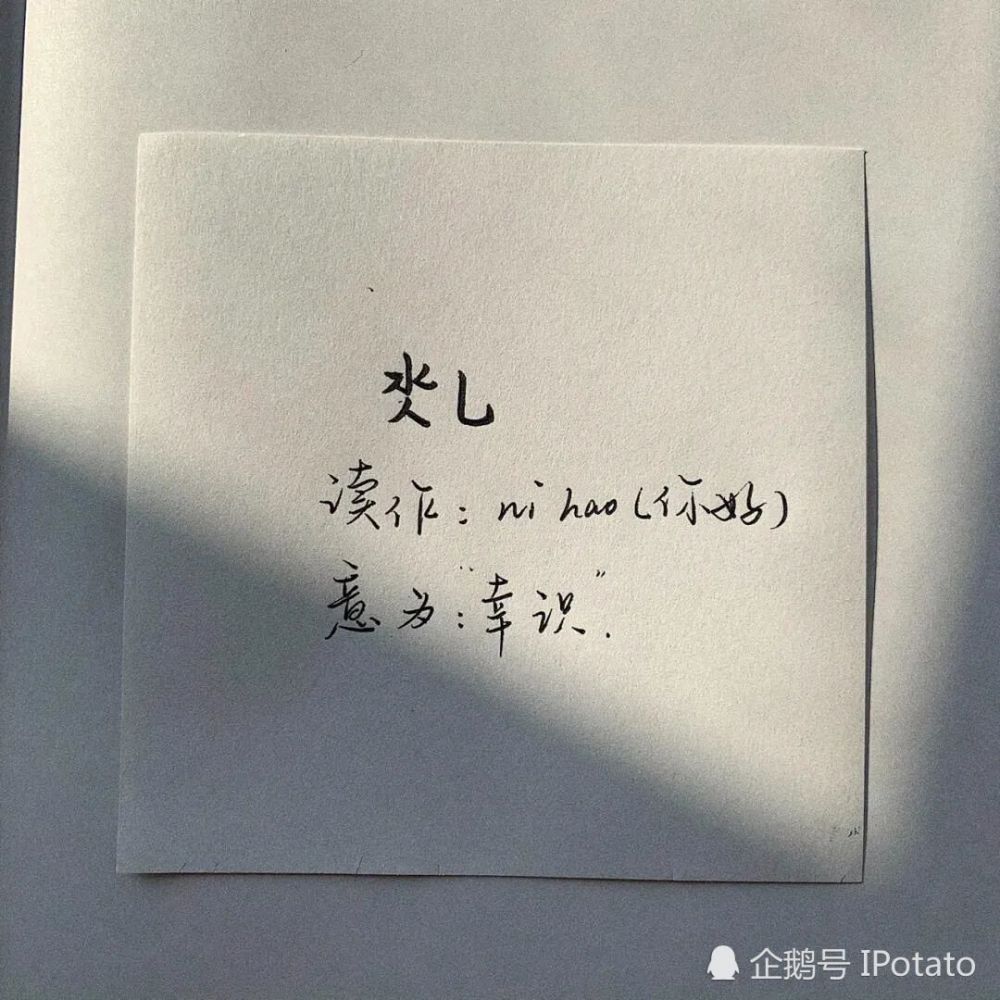 氼乚
读作：ni hao（你好）
意为：“幸识”．
企鹅号 IPotato